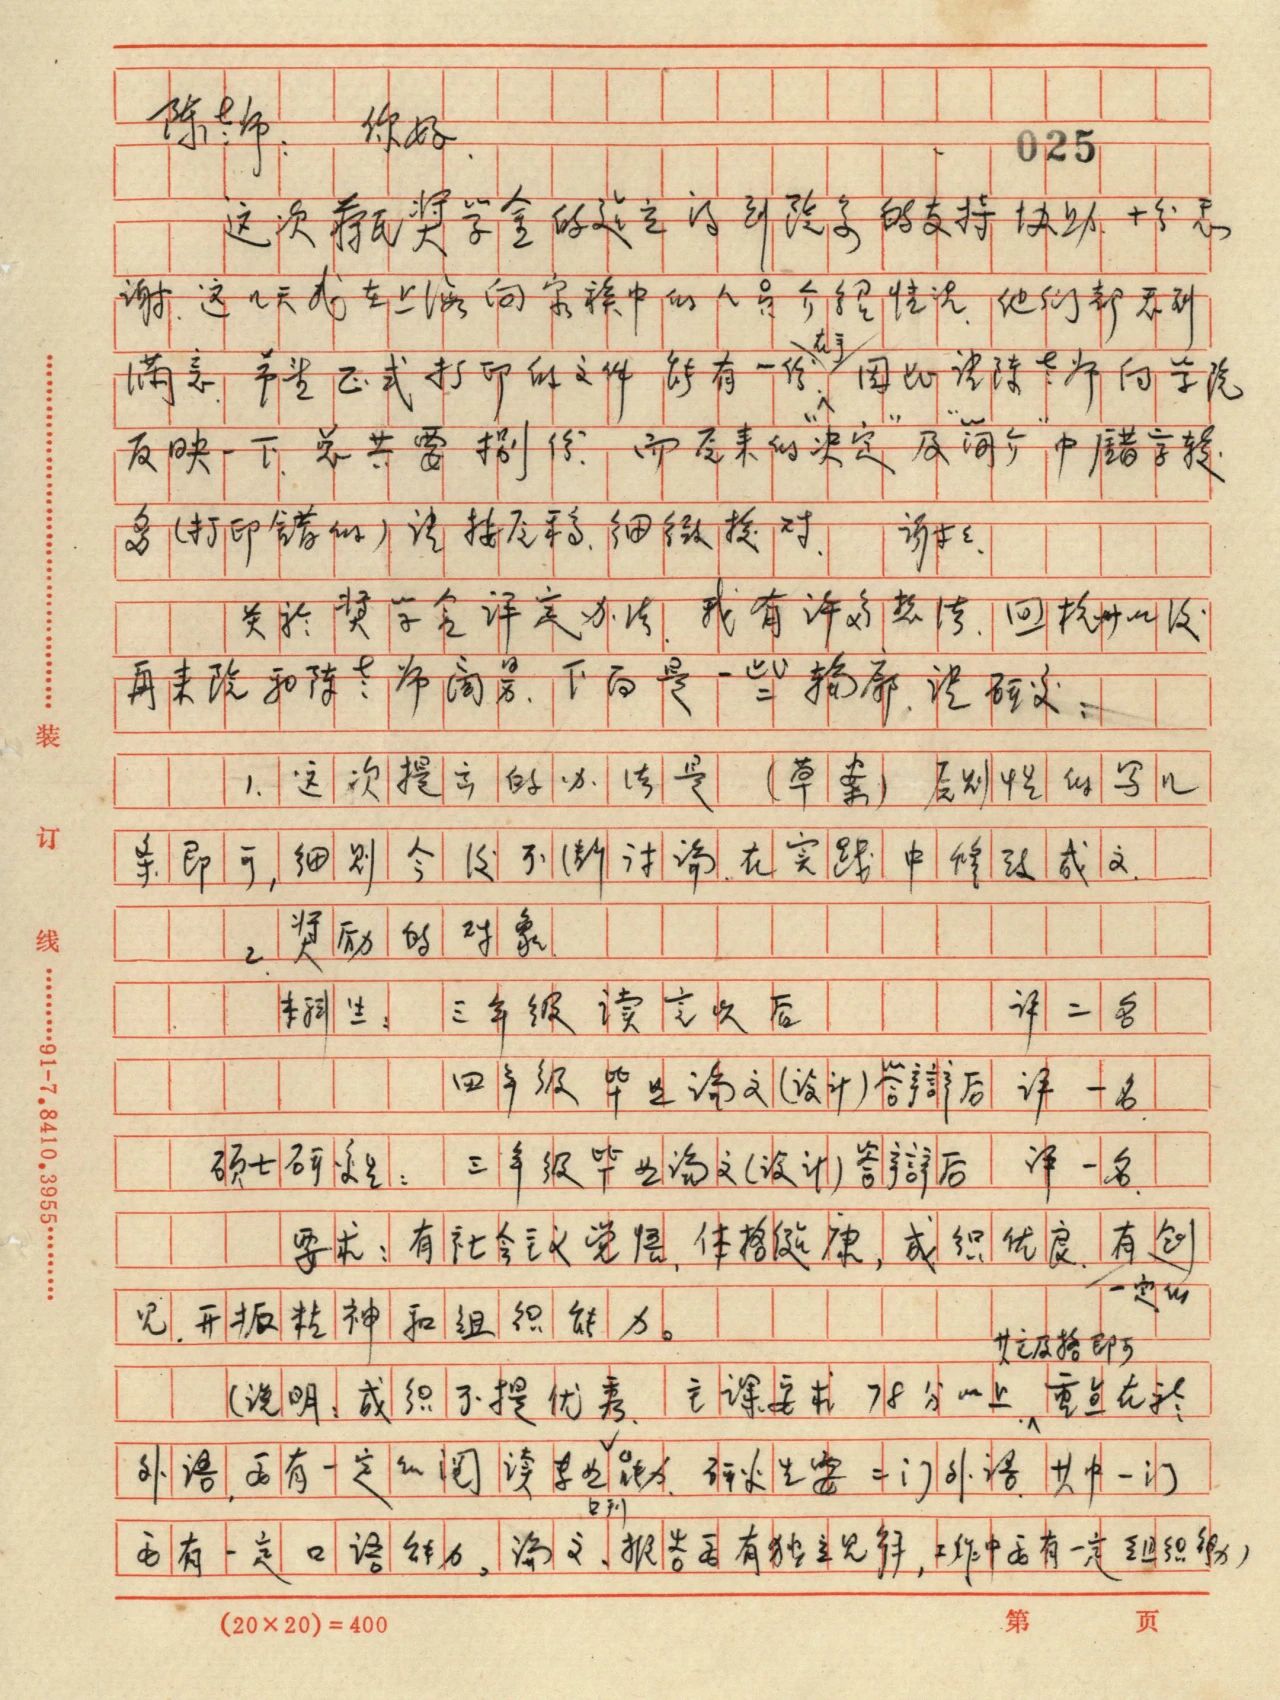 陈老师: 你好.
025
这次蒋氏奖学金的建立得到院系的支持协助.十分感
谢.这几天我在上海向家族中的人员介绍情况.他们都感到
满意.希望正式打印的文件能有一份 因此请陈老师向学院
在手
反映一下.总共要捌份.而原来的“决定”及“简介”中错字较
多(打印错的)请按原稿.细致校对. 谢谢.
关於奖学金评定办法.我有许多想法.回杭州以后
再来院和陈老师商量.下面是一些轮廓.请研究:
1.这次提出的办法是(草案)原则性的写几
条即可,细则今后不断讨论.在实践中修改成文.
2.奖励的对象
本科生: 三年级读完以后 评二名
四年级毕业论文(设计)答辩后 评一名
硕士研究生: 三年级毕业论文(设计)答辩后 评一名.
要求:有社会主义觉悟,体格健康,成绩优良.有创
一定的
见.开拓精神和组织能力。
其它及格即可
(说明:成绩不提优秀.主课要求78分以上.重点在於
外语,要有一定的阅读专业能力.研究生要二门外语.其中一门
书刊
要有一定口语能力。论文、报告要有独立见解,工作中要有一定组织能力)
(20×20)=400 第 页
装
订
线
91-7.8410.3955